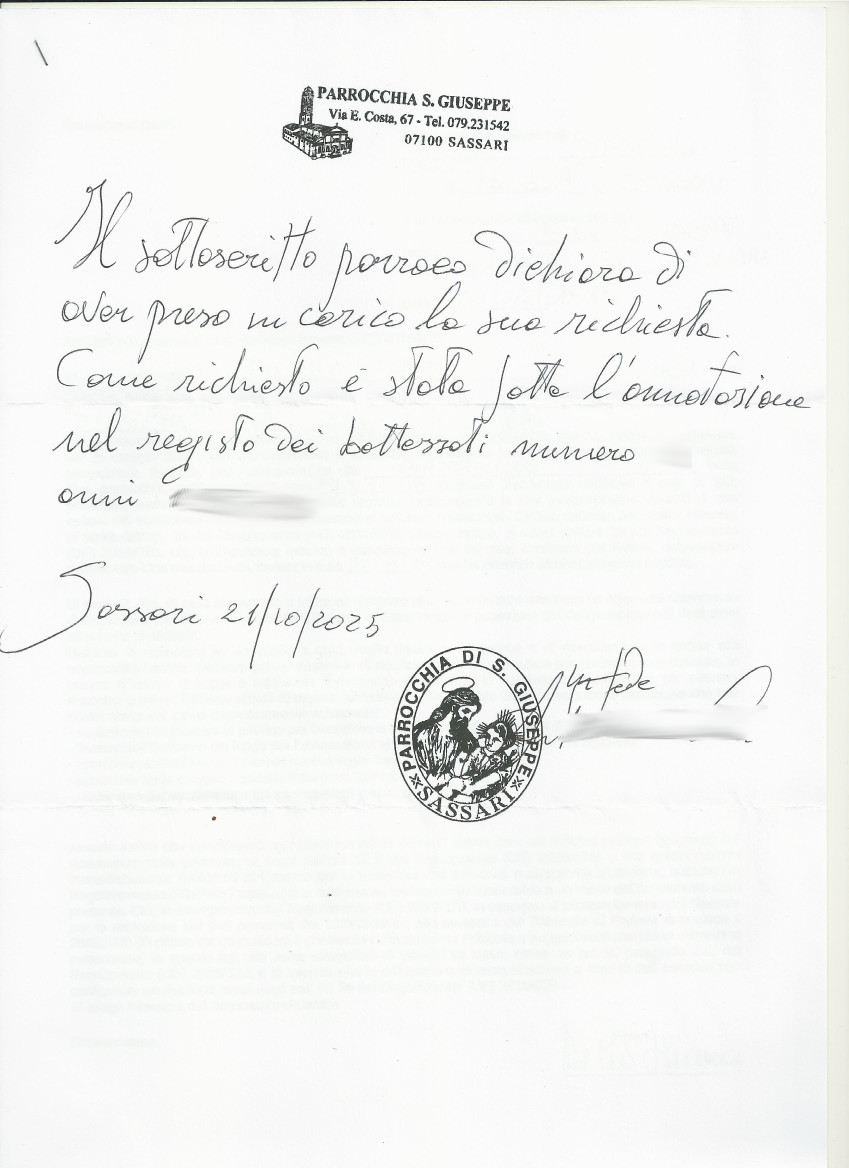 PARROCCHIA S. GIUSEPPE
Via E. Costa, 67 - Tel. 079.231542
07100 SASSARI
Il sottoscritto parroco dichiara di
aver preso in carico la sua richiesta.
Come richiesto è stata fatta l'annotazione
nel registo dei battezzati numero
anni
Sassari 21/10/2025
In fede
PARROCCHIA DI S. GIUSEPPE
SASSARI